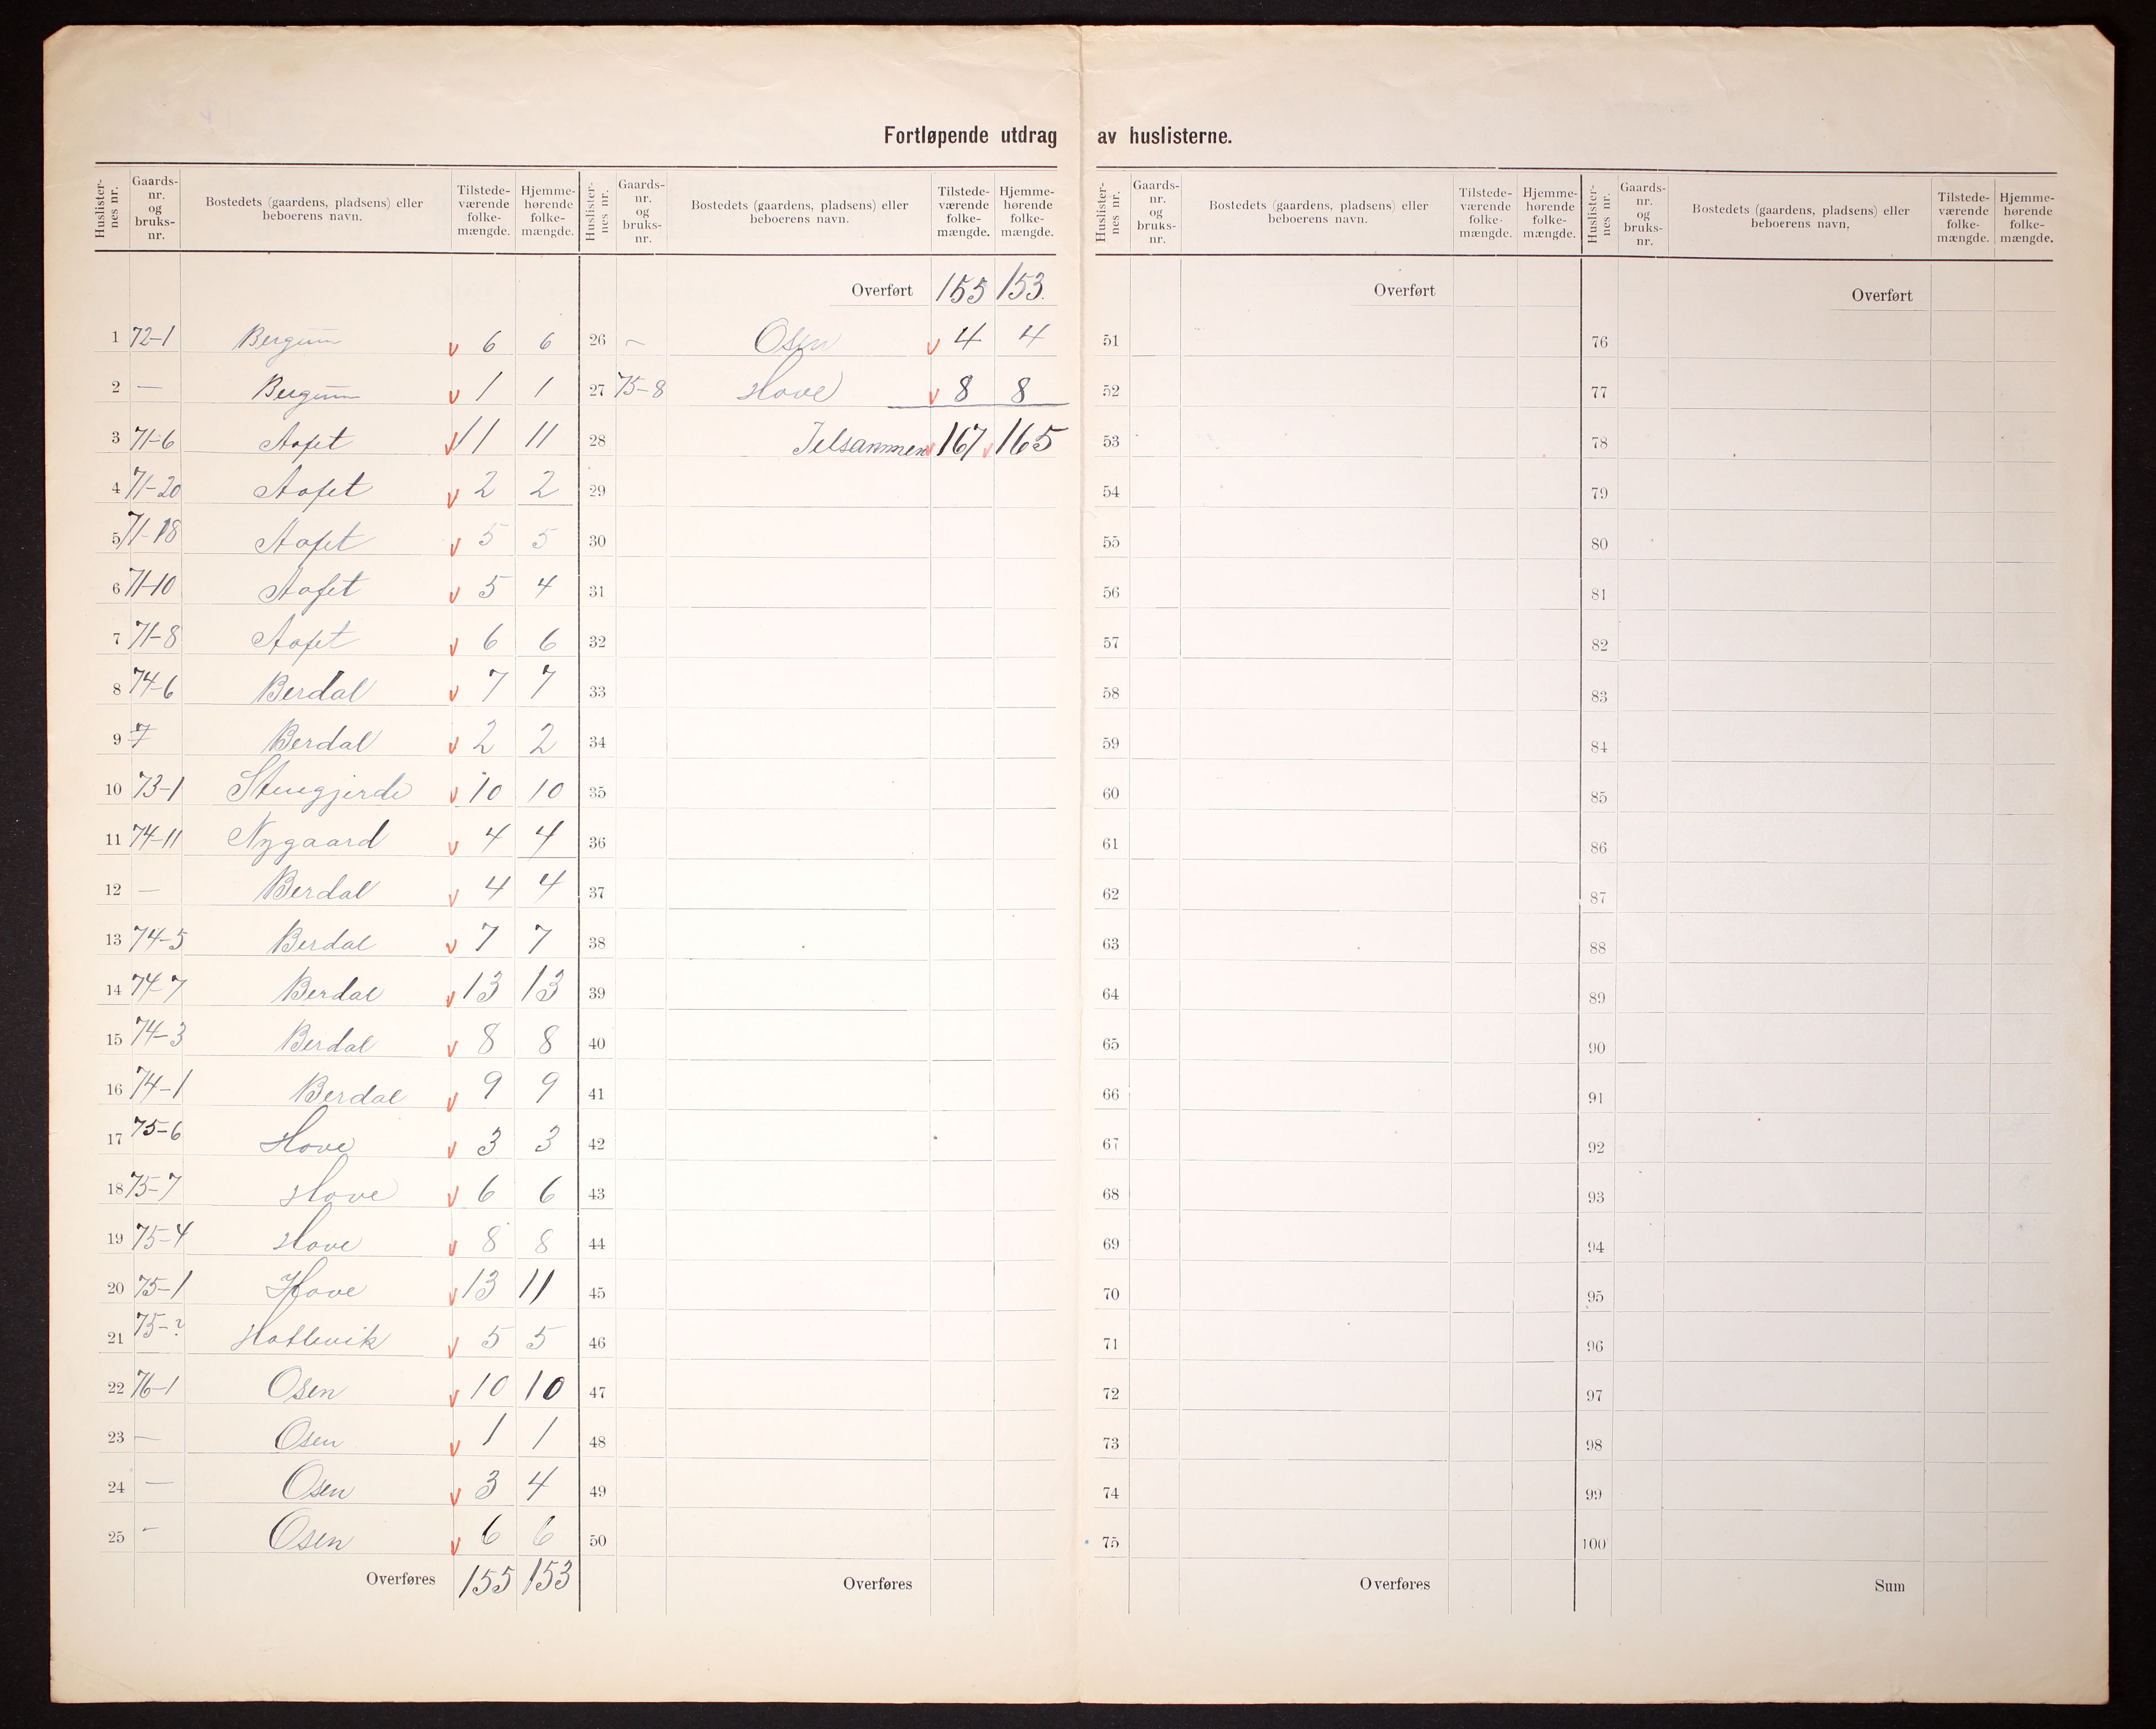 Fortløpende utdrag av huslisterne.
Huslisternes nr. Gaards-nr. og bruks-nr. Bostedets (gaardens, pladsens) eller beboerens navn. Tilstede-værende folke-mængde. Hjemme-hørende folke-mængde.
1 72-1 Bergum 6 6
2 — Bergum 1 1
3 71-6 Aafet 11 11
4 71-20 Aafet 2 2
5 71-18 Aafet 5 5
6 71-10 Aafet 5 4
7 71-8 Aafet 6 6
8 74-6 Berdal 7 7
9 Berdal 2 2
10 73-1 Stengjerde 10 10
11 74-11 Nygaard 4 4
12 — Berdal 4 4
13 74-5 Berdal 7 7
14 74-7 Berdal 13 13
15 74-3 Berdal 8 8
16 74-1 Berdal 9 9
17 75-6 Hove 3 3
18 75-7 Hove 6 6
19 75-4 Hove 8 8
20 75-1 Hove 13 11
21 75-? Hatlevik 5 5
22 76-1 Osen 10 10
23 — Osen 1 1
24 — Osen 3 4
25 - Osen 6 6
Overføres 155 153
Huslisternes nr. Gaards-nr. og bruks-nr. Bostedets (gaardens, pladsens) eller beboerens navn. Tilstede-værende folke-mængde. Hjemme-hørende folke-mængde.
Overført 155 153.
26 — Osen 4 4
27 75-8 Hove 8 8
28 Tilsammen 167 165
29
30
31
32
33
34
35
36
37
38
39
40
41
42
43
44
45
46
47
48
49
50
Overføres
Huslisternes nr. Gaards-nr. og bruks-nr. Bostedets (gaardens, pladsens) eller beboerens navn. Tilstede-værende folke-mængde. Hjemme-hørende folke-mængde.
Overført
51
52
53
54
55
56
57
58
59
60
61
62
63
64
65
66
67
68
69
70
71
72
73
74
75
Overføres
Huslisternes nr. Gaards-nr. og bruks-nr. Bostedets (gaardens, pladsens) eller beboerens navn. Tilstede-værende folke-mængde. Hjemme-hørende folke-mængde.
Overført
76
77
78
79
80
81
82
83
84
85
86
87
88
89
90
91
92
93
94
95
96
97
98
99
100
Sum